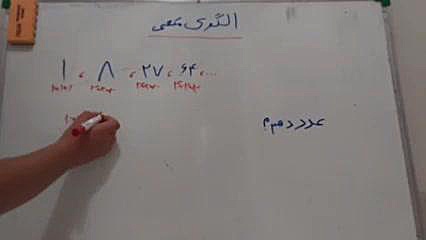 الگوی مکعبی
۱ ، ۸ ، ۲۷ ، ۶۴ ، ...
۱×۱×۱ ۲×۲×۲ ۳×۳×۳ ۴×۴×۴
عدد دهم